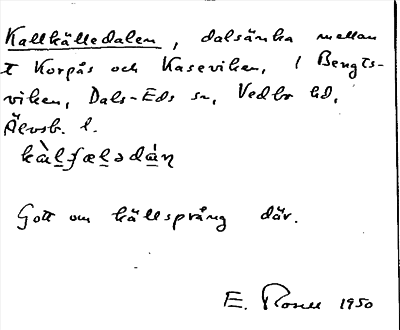 Kallkälledalen, dalsänka mellan
t Korpås och Kaseviken, / Bengts-
viken, Dals-Eds sn, Vedbo hd,
Älvsb. l.
Gott om källsprång där.
E. 1950